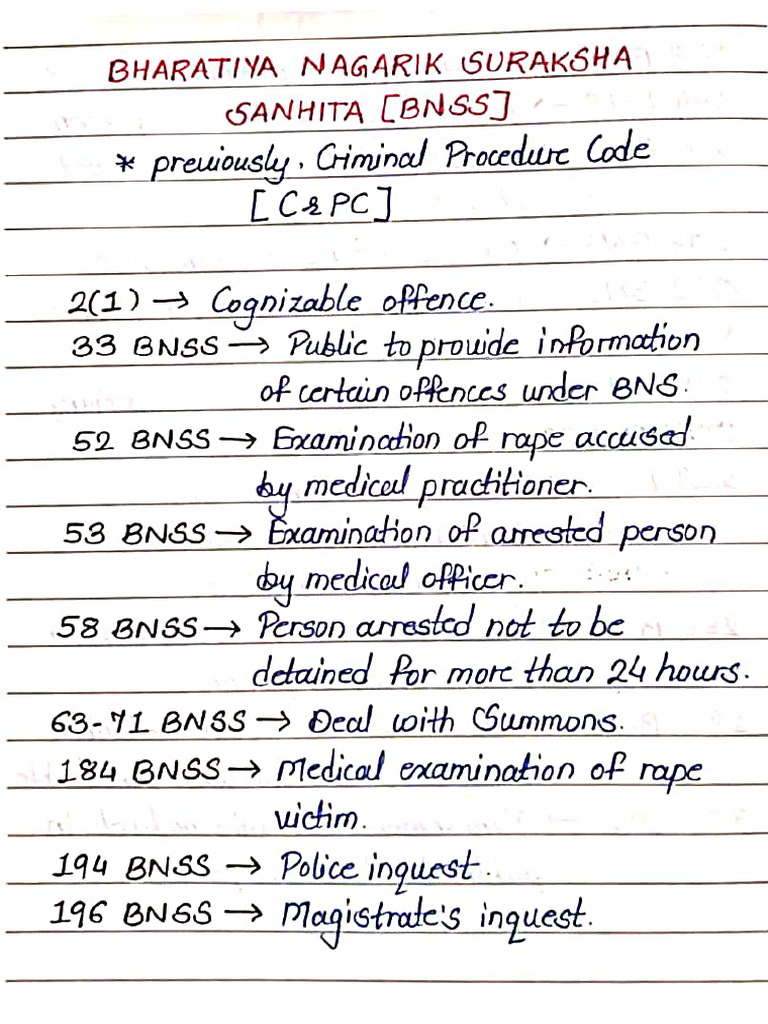 BHARATIYA NAGARIK SURAKSHA
SANHITA [BNSS]
* previously, Criminal Procedure Code
[CrPC]
2(1) → Cognizable offence.
33 BNSS → Public to provide information
of certain offences under BNS.
52 BNSS → Examination of rape accused
by medical practitioner.
53 BNSS → Examination of arrested person
by medical officer.
58 BNSS → Person arrested not to be
detained for more than 24 hours.
63-71 BNSS → Deal with Summons.
184 BNSS → Medical examination of rape
victim.
194 BNSS → Police inquest.
196 BNSS → Magistrate's inquest.